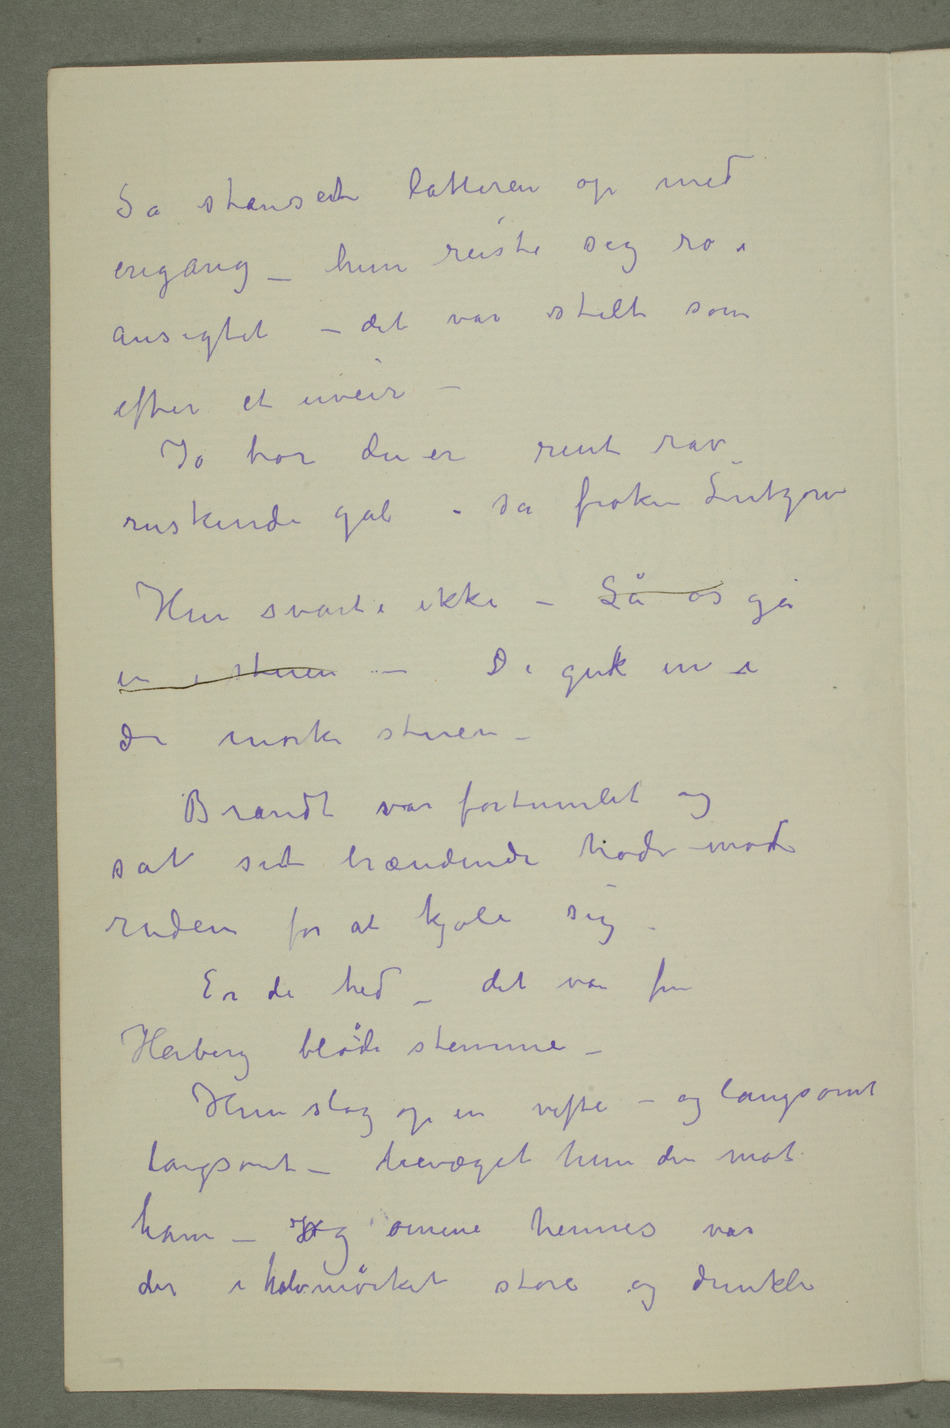 Sa stanset latteren op med
engang – hun reiste seg ro i
ansigtet – det var stilt som
efter et uveir –
Jo hor du er rent rav
ruskende gal – sa frøken Lützow
Hun svarte ikke – Så os gå
in i stuen – De gik in i
de mørke stuen –
Brandt var fortumlet og
sat sit brændende hode mod
ruden for at kjøle sig.
Er de hed – det var fru
Heiberg bløde stemme –
Hun slog op en vifte – og langsomt
langsomt – bevæget hun den mot
ham – og öinene hennes var
der i halvmörket store og dunkle